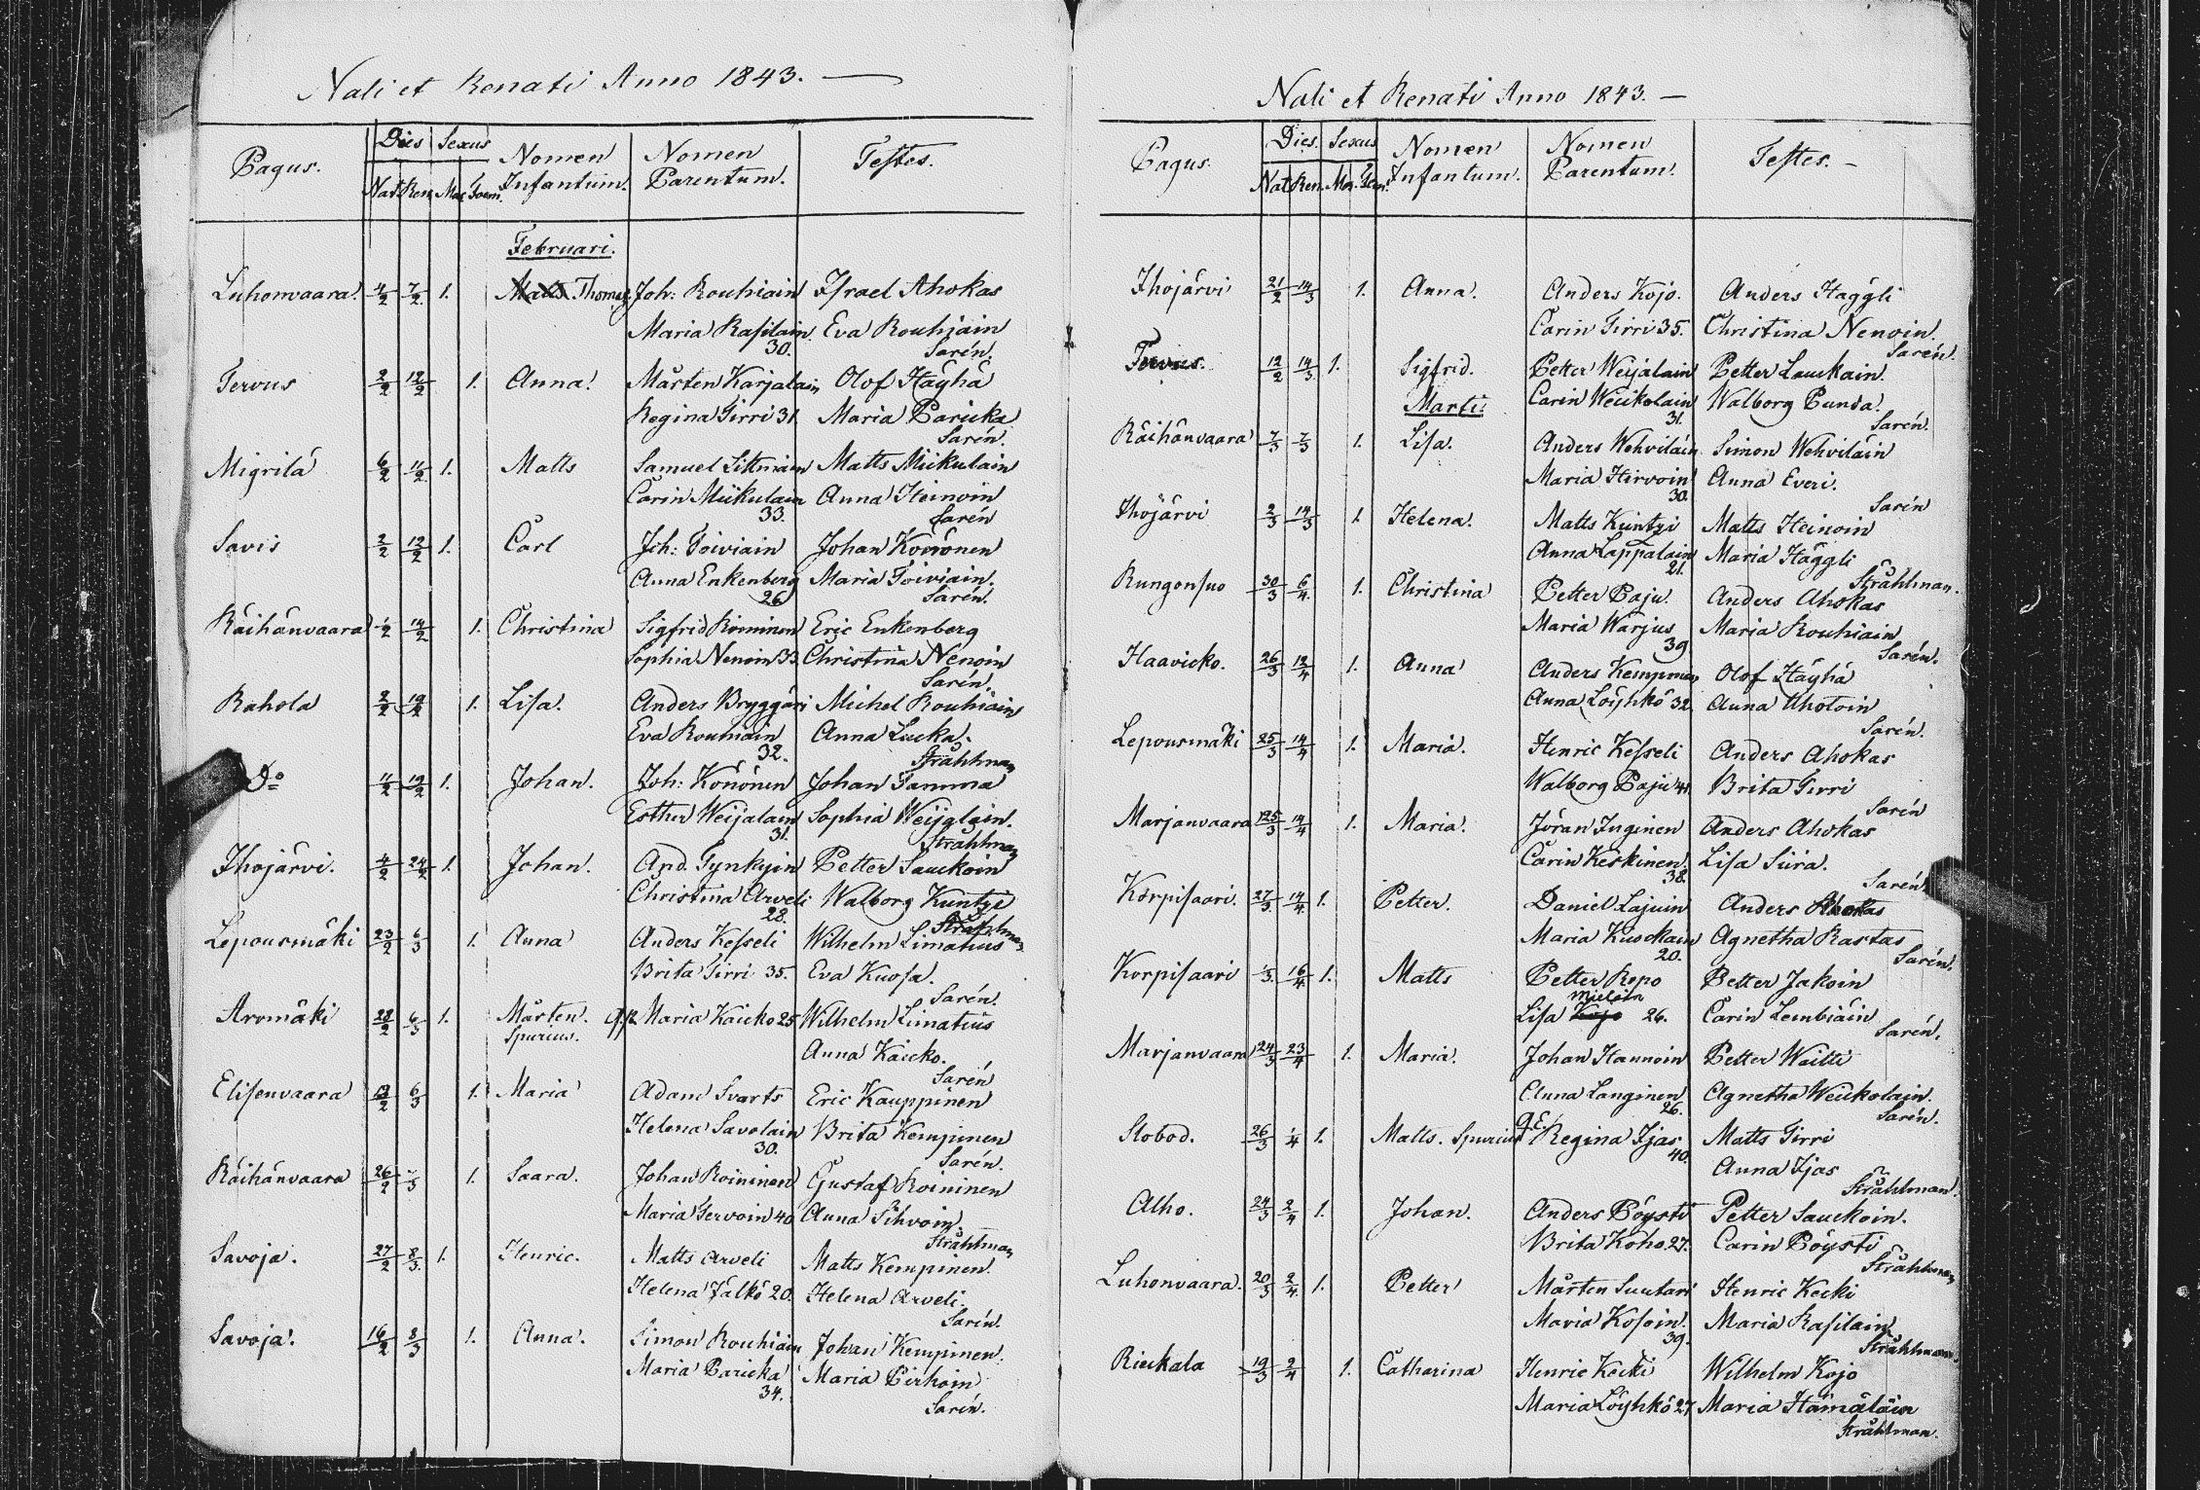 Nati et Renati Anno 1843. —
Pagus. Dies Sexus Nomen Infantum. Nomen Parentum. Testes.
Nat Ren Mas Foem.
Februari.
Luhonvaara. 4/2 7/2 1. Matts Thomas Joh: Rouhiain Israel Ahokas
Maria Rasilain Eva Rouhiain
30. Sarén.
Tervus 2/2 12/2 1. Anna. Mårten Karjalain Olof Häyhä
Regina Tirri 31. Maria Paricka
Sarén.
Migrilä 6/2 11/2 1. Matts Samuel Littmain Matts Miikulain
Carin Miikulain Anna Heinoin
33. Sarén
Savis 2/2 12/2 1. Carl Joh: Toiviain Johan Könönen
Anna Enkenberg Maria Toiviain.
26 Sarén.
Räihänvaara 1/2 14/2 1. Christina Sigfrid Roininen Eric Enkenberg
Sophia Nenoin 33. Christina Nenoin
Sarén.
Rahola 2/2 19/2 1. Lisa. Anders Bryggäri Michel Rouhiain
Eva Rouhiain Anna Lucka.
32. Stråhlman
Do 11/2 19/2 1. Johan. Joh: Könönen Johan Tamma
Esther Weijalain Sophia Weijalain.
31. Stråhlman
Ihojärvi. 4/2 24/2 1. Johan. And. Tynkyin Petter Sauckoin
Christina Arveli Walborg Kuntzi
28. Stråhlman
Lepousmäki 23/2 6/3 1. Anna Anders Kesseli Wilhelm Limatius
Brita Tirri 35. Eva Kuosa.
Sarén.
Aromäki 22/2 6/3 1. Mårten. Maria Kaicko 25 Wilhelm Limatius
Spurius. Anna Kaicko.
Sarén
Elisenvaara 13/2 6/3 1. Maria Adam Svarts Eric Kauppinen
Helena Savolain Brita Kempinen
30. Sarén.
Räihänvaara 26/2 1. Saara. Johan Roininen Gustaf Roininen
Maria Tervoin 40 Anna Sihvoin.
Stråhlman
Savoja. 27/2 8/3. 1. Henric. Matts Arveli Matts Kempinen.
Helena Jälkö 20. Helena Arveli.
Sarén.
Savoja. 16/2 8/3 1. Anna. Simon Rouhiain Johan Kempinen.
Maria Paricka Maria Pirhoin
34. Sarén.
Nati et Renati Anno 1843. —
Pagus. Dies. Sexus Nomen Infantum. Nomen Parentum. Testes. —
Nat Ren. Mas. Foem.
Ihojärvi 21/2 14/3 1. Anna. Anders Kojo. Anders Häggli
Carin Tirri 35. Christina Nenoin.
Sarén.
Tervus. 12/2 14/3. 1. Sigfrid. Petter Weijalain Petter Lauckain.
Carin Weickolain Walborg Punda.
Marti. 31. Sarén.
Räihänvaara 7/3 7/3 1. Lisa. Anders Wehviläin Simon Wehviläin
Maria Hirvoin Anna Everi.
30. Sarén
Ihojärvi 2/3 14/3 1. Helena. Matts Kuntzi Matts Heinoin
Anna Lappalain Maria Häggli
21. Stråhlman.
Rungonsuo 30/3 6/4. 1. Christina Petter Paju. Anders Ahokas
Maria Warjus Maria Rouhiain
39 Sarén.
Haavicko. 26/3 12/4 1. Anna Anders Kempinen Olof Häyhä
Anna Löyhkö 32. Anna Ahotoin
Sarén.
Lepousmäki 25/3 14/4 1. Maria. Henric Kesseli Anders Ahokas
Walborg Paju 41. Brita Tirri
Sarén
Marjanvaara 25/3 14/4 1. Maria. Jöran Inginen Anders Ahokas
Carin Keskinen. Lisa Siira.
38. Sarén
Korpisaari. 27/3. 14/4. 1. Petter. Daniel Lajuin Anders Ahokas
Maria Kuockain Agnetha Rastas
20. Sarén.
Korpisaari 1/3. 16/4. 1. Matts Petter Repo Petter Jakoin
Mieloin
Lisa Kojo 26. Carin Lembiäin
Sarén.
Marjanvaara 24/3 23/4 1. Maria. Johan Hannoin Petter Waitti
Anna Langinen Agnetha Weickolain.
26. Sarén.
Slobod. 26/3 1/4 1. Matts. Spurius Regina Ijas Matts Tirri
40. Anna Ijas
Stråhlman.
Alho. 24/3 2/4 1. Johan. Anders Pöysti Petter Sauckoin.
Brita Koho 27. Carin Pöysti
Stråhlman
Luhonvaara. 20/3 2/4. 1. Petter Mårten Suutari Henric Kecki
Maria Kosoin. Maria Rasilain
39. Stråhlman.
Rieckala 19/3 2/4 1. Catharina Henric Kecki Wilhelm Kojo
Maria Löyhkö 27 Maria Hämäläin
Stråhlman.